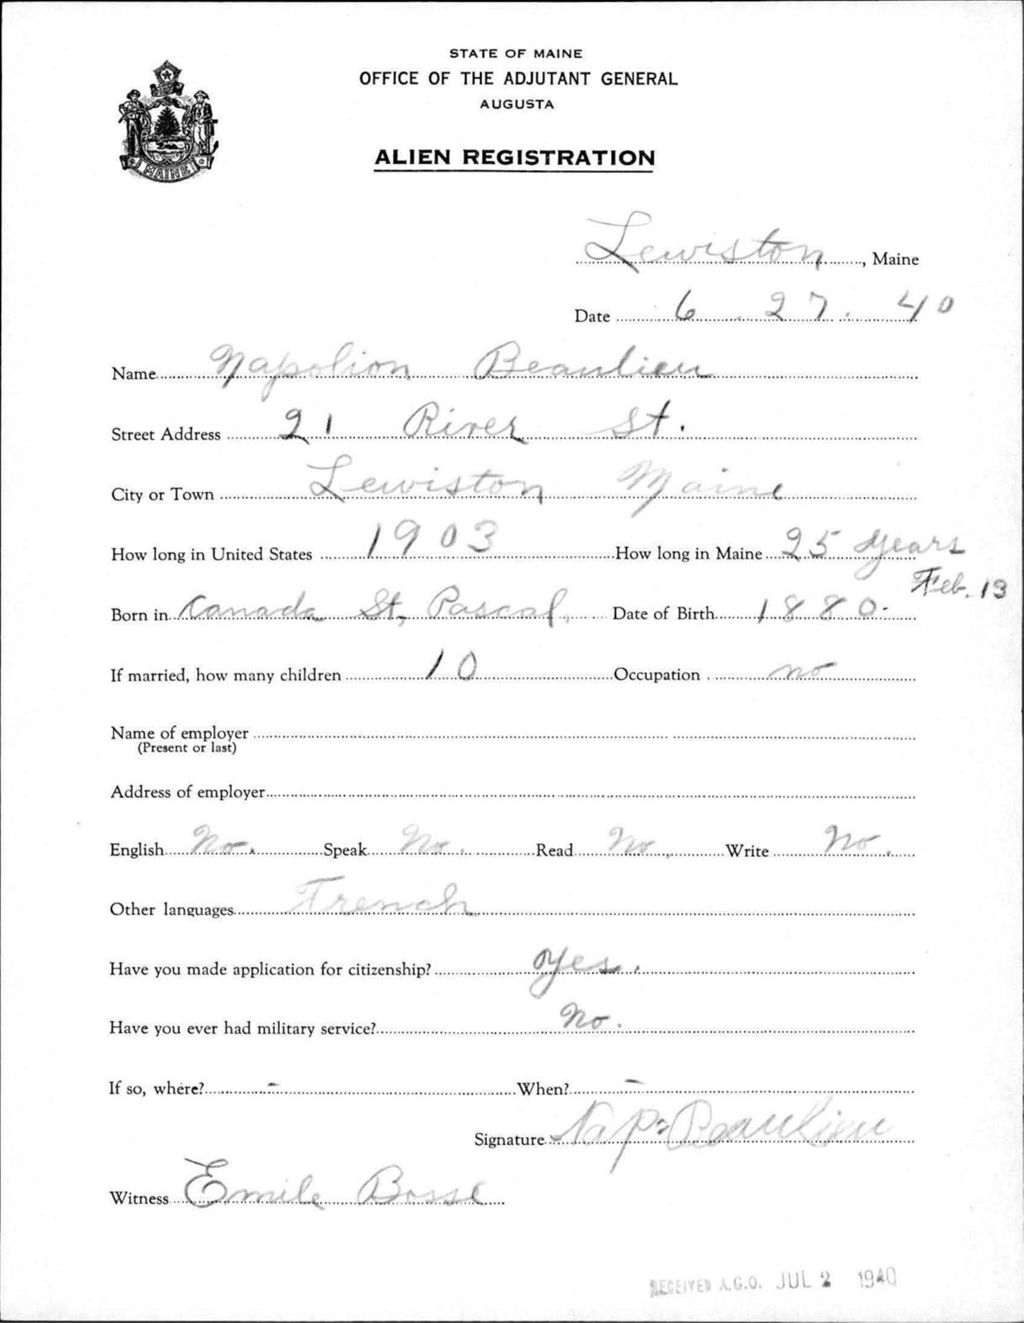 STATE OF MAINE
OFFICE OF THE ADJUTANT GENERAL
AUGUSTA
ALIEN REGISTRATION
MAINE
Lewiston, Maine
Date 6 . 27 . 40
Name Napolion Beaulieu
Street Address 21 River St.
City or Town Lewiston Maine
How long in United States 1903 How long in Maine 25 years
Feb. 13
Born in Canada St, Pascal, Date of Birth 1880.
If married, how many children 10 Occupation no
Name of employer
(Present or last)
Address of employer
English No. Speak No. Read No. Write No.
Other languages French
Have you made application for citizenship? Yes.
Have you ever had military service? No.
If so, where? - When? -
Signature Nap: Beaulieu
Witness Emile Bosse
RECEIVED A.G.O. JUL 2 1940